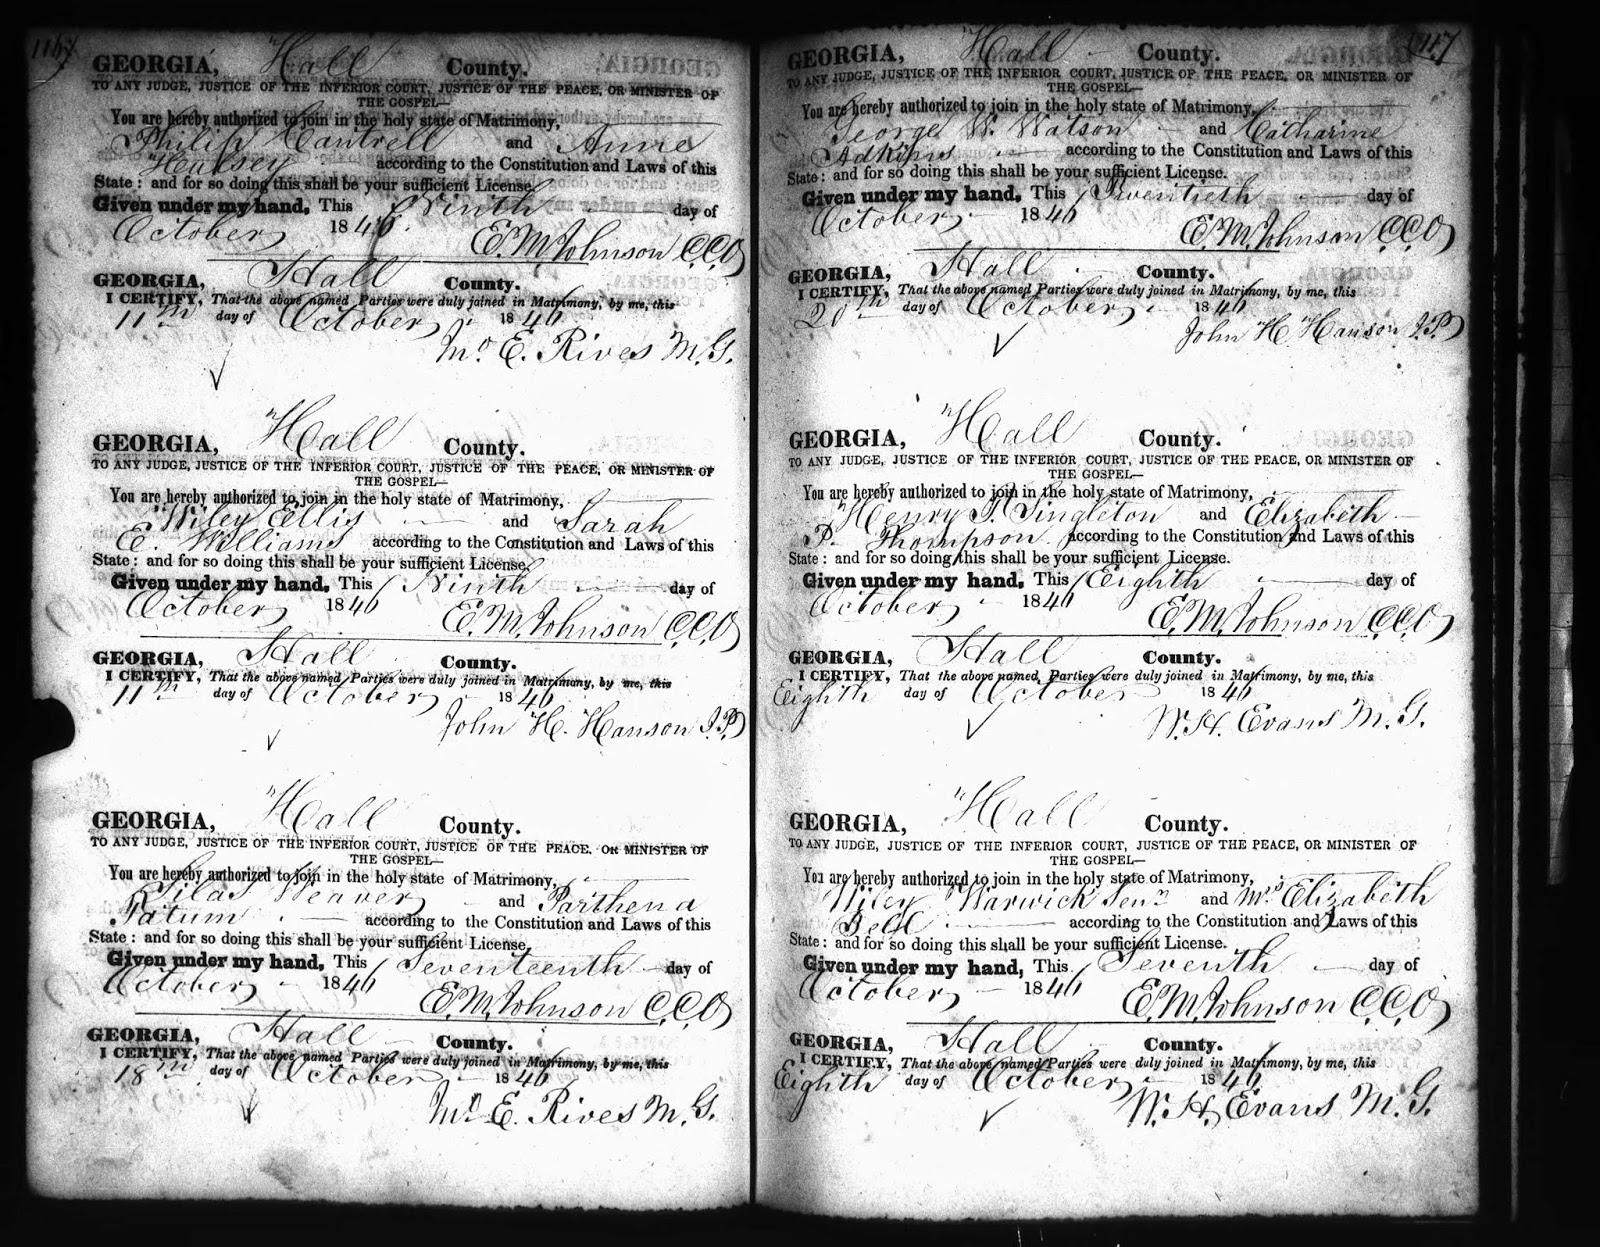 GEORGIA, Hall County.
TO ANY JUDGE, JUSTICE OF THE INFERIOR COURT, JUSTICE OF THE PEACE, OR MINISTER OF
THE GOSPEL—
You are hereby authorized to join in the holy state of Matrimony,
Philip Cantrell and Anne
Hulsey according to the Constitution and Laws of this
State: and for so doing this shall be your sufficient License.
Given under my hand, This Ninth day of
October 1846. E. M. Johnson C.C.O
GEORGIA, Hall County.
I CERTIFY, That the above named Parties were duly joined in Matrimony, by me, this
11th day of October 1846
E. Rives M.G.
GEORGIA, Hall County.
TO ANY JUDGE, JUSTICE OF THE INFERIOR COURT, JUSTICE OF THE PEACE, OR MINISTER OF
THE GOSPEL—
You are hereby authorized to join in the holy state of Matrimony,
Wiley Ellis and Sarah
E. Williams according to the Constitution and Laws of this
State: and for so doing this shall be your sufficient License.
Given under my hand, This Ninth day of
October 1846 E. M. Johnson C.C.O
GEORGIA, Hall County.
I CERTIFY, That the above named Parties were duly joined in Matrimony, by me, this
11th day of October 1846
John H. Hanson J.P.
GEORGIA, Hall County.
TO ANY JUDGE, JUSTICE OF THE INFERIOR COURT, JUSTICE OF THE PEACE, OR MINISTER OF
THE GOSPEL—
You are hereby authorized to join in the holy state of Matrimony,
Silas Weaver and Parthena
Tatum according to the Constitution and Laws of this
State: and for so doing this shall be your sufficient License.
Given under my hand, This Seventeenth day of
October 1846 E. M. Johnson C.C.O
GEORGIA, Hall County.
I CERTIFY, That the above named Parties were duly joined in Matrimony, by me, this
18th day of October 1846
E. Rives M.G.
GEORGIA, Hall County.
TO ANY JUDGE, JUSTICE OF THE INFERIOR COURT, JUSTICE OF THE PEACE, OR MINISTER OF
THE GOSPEL—
You are hereby authorized to join in the holy state of Matrimony,
George W. Watson and Catharine
Adkins according to the Constitution and Laws of this
State: and for so doing this shall be your sufficient License.
Given under my hand, This Twentieth day of
October 1846 E. M. Johnson C.C.O
GEORGIA, Hall County.
I CERTIFY, That the above named Parties were duly joined in Matrimony, by me, this
20th day of October 1846
John H. Hanson J.P.
GEORGIA, Hall County.
TO ANY JUDGE, JUSTICE OF THE INFERIOR COURT, JUSTICE OF THE PEACE, OR MINISTER OF
THE GOSPEL—
You are hereby authorized to join in the holy state of Matrimony,
Henry Singleton and Elizabeth
P. Thompson according to the Constitution and Laws of this
State: and for so doing this shall be your sufficient License.
Given under my hand, This Eighth day of
October 1846 E. M. Johnson C.C.O
GEORGIA, Hall County.
I CERTIFY, That the above named Parties were duly joined in Matrimony, by me, this
Eighth day of October 1846
W. H. Evans M.G.
GEORGIA, Hall County.
TO ANY JUDGE, JUSTICE OF THE INFERIOR COURT, JUSTICE OF THE PEACE, OR MINISTER OF
THE GOSPEL—
You are hereby authorized to join in the holy state of Matrimony,
Wiley Warwick Senr and Mrs Elizabeth
Bell according to the Constitution and Laws of this
State: and for so doing this shall be your sufficient License.
Given under my hand, This Seventh day of
October 1846 E. M. Johnson C.C.O
GEORGIA, Hall County.
I CERTIFY, That the above named Parties were duly joined in Matrimony, by me, this
Eighth day of October 1846
W. H. Evans M.G.